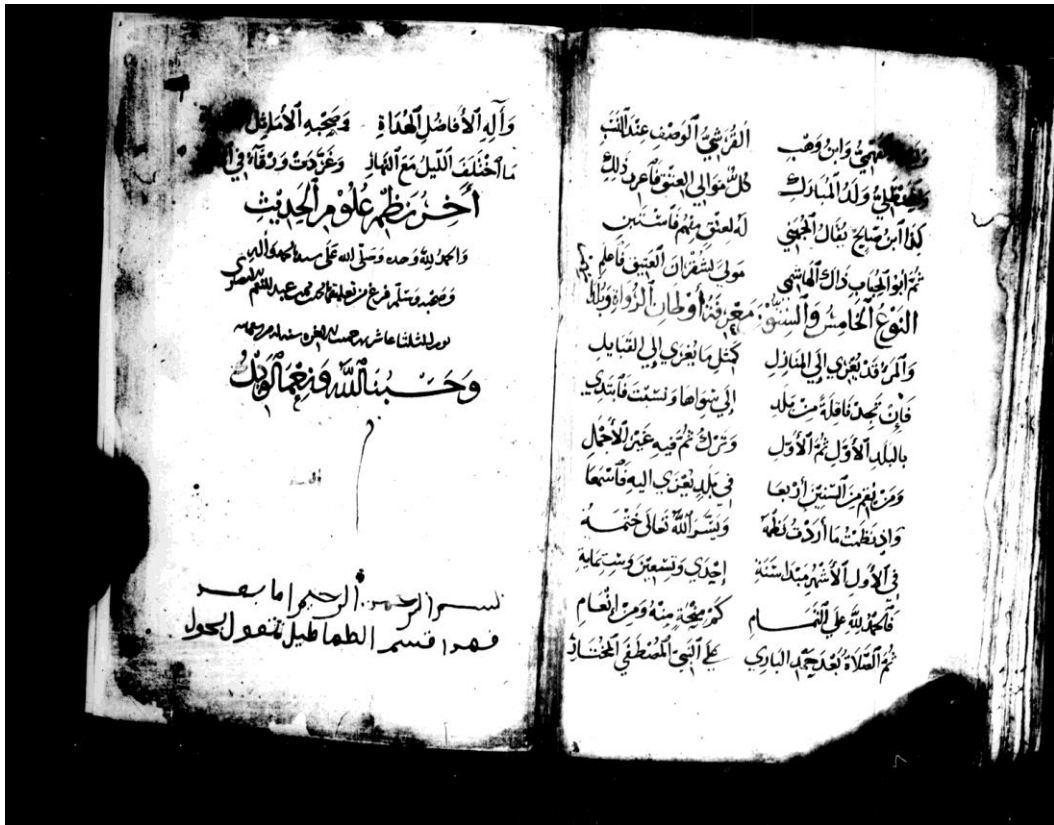 وابن وهب القرشي الوصف عند النسب
ولد المبارك كل موالي العتق فاعرف ذلك
كذا ابن صالح يقال الجهني له لعتق منهم فاستبن
ثم ابو الحباب ذاك الهاشمي مولى لشقران العتيق فاعلم
النوع الخامس والستون معرفة أوطان الرواة
والمرء قد يعزي إلي المنازل كمثل ما يعزي إلي القبايل
فإن تجد ناقلة من بلد إلي سواها ونسبت فابتدي
بالبلد الأول ثم الأول وترك ثم فيه غير الأجمل
ومن يقم من السنين أربعا في بلد يعزي اليه فاسمعا
واذ نظمت ما أردت نظمه ويسر الله تعالى ختمه
في الأول الأشهر مبدا سنة إحدي وتسعين وستماية
فالحمد لله علي التمام كم منحة منه ومن إنعام
ثم الصلاة بعد حمد الباري علي النبي المصطفي المختار
وآله الأفاضل الهداة وصحبه الأماثل
ما اختلف الليل مع النهار وغردت ورقآء في
آخر نظم علوم الحديث
والحمد لله وحده وصلى الله على سيدنا محمد واله
وصحبه وسلم فرغ من تعليقه محمد بن عبد المنعم
وحسبنا الله ونعم الوكيل
بسم الرحمن الرحيم اما بعد
فهدا قسم الطماطيل تقول بحول